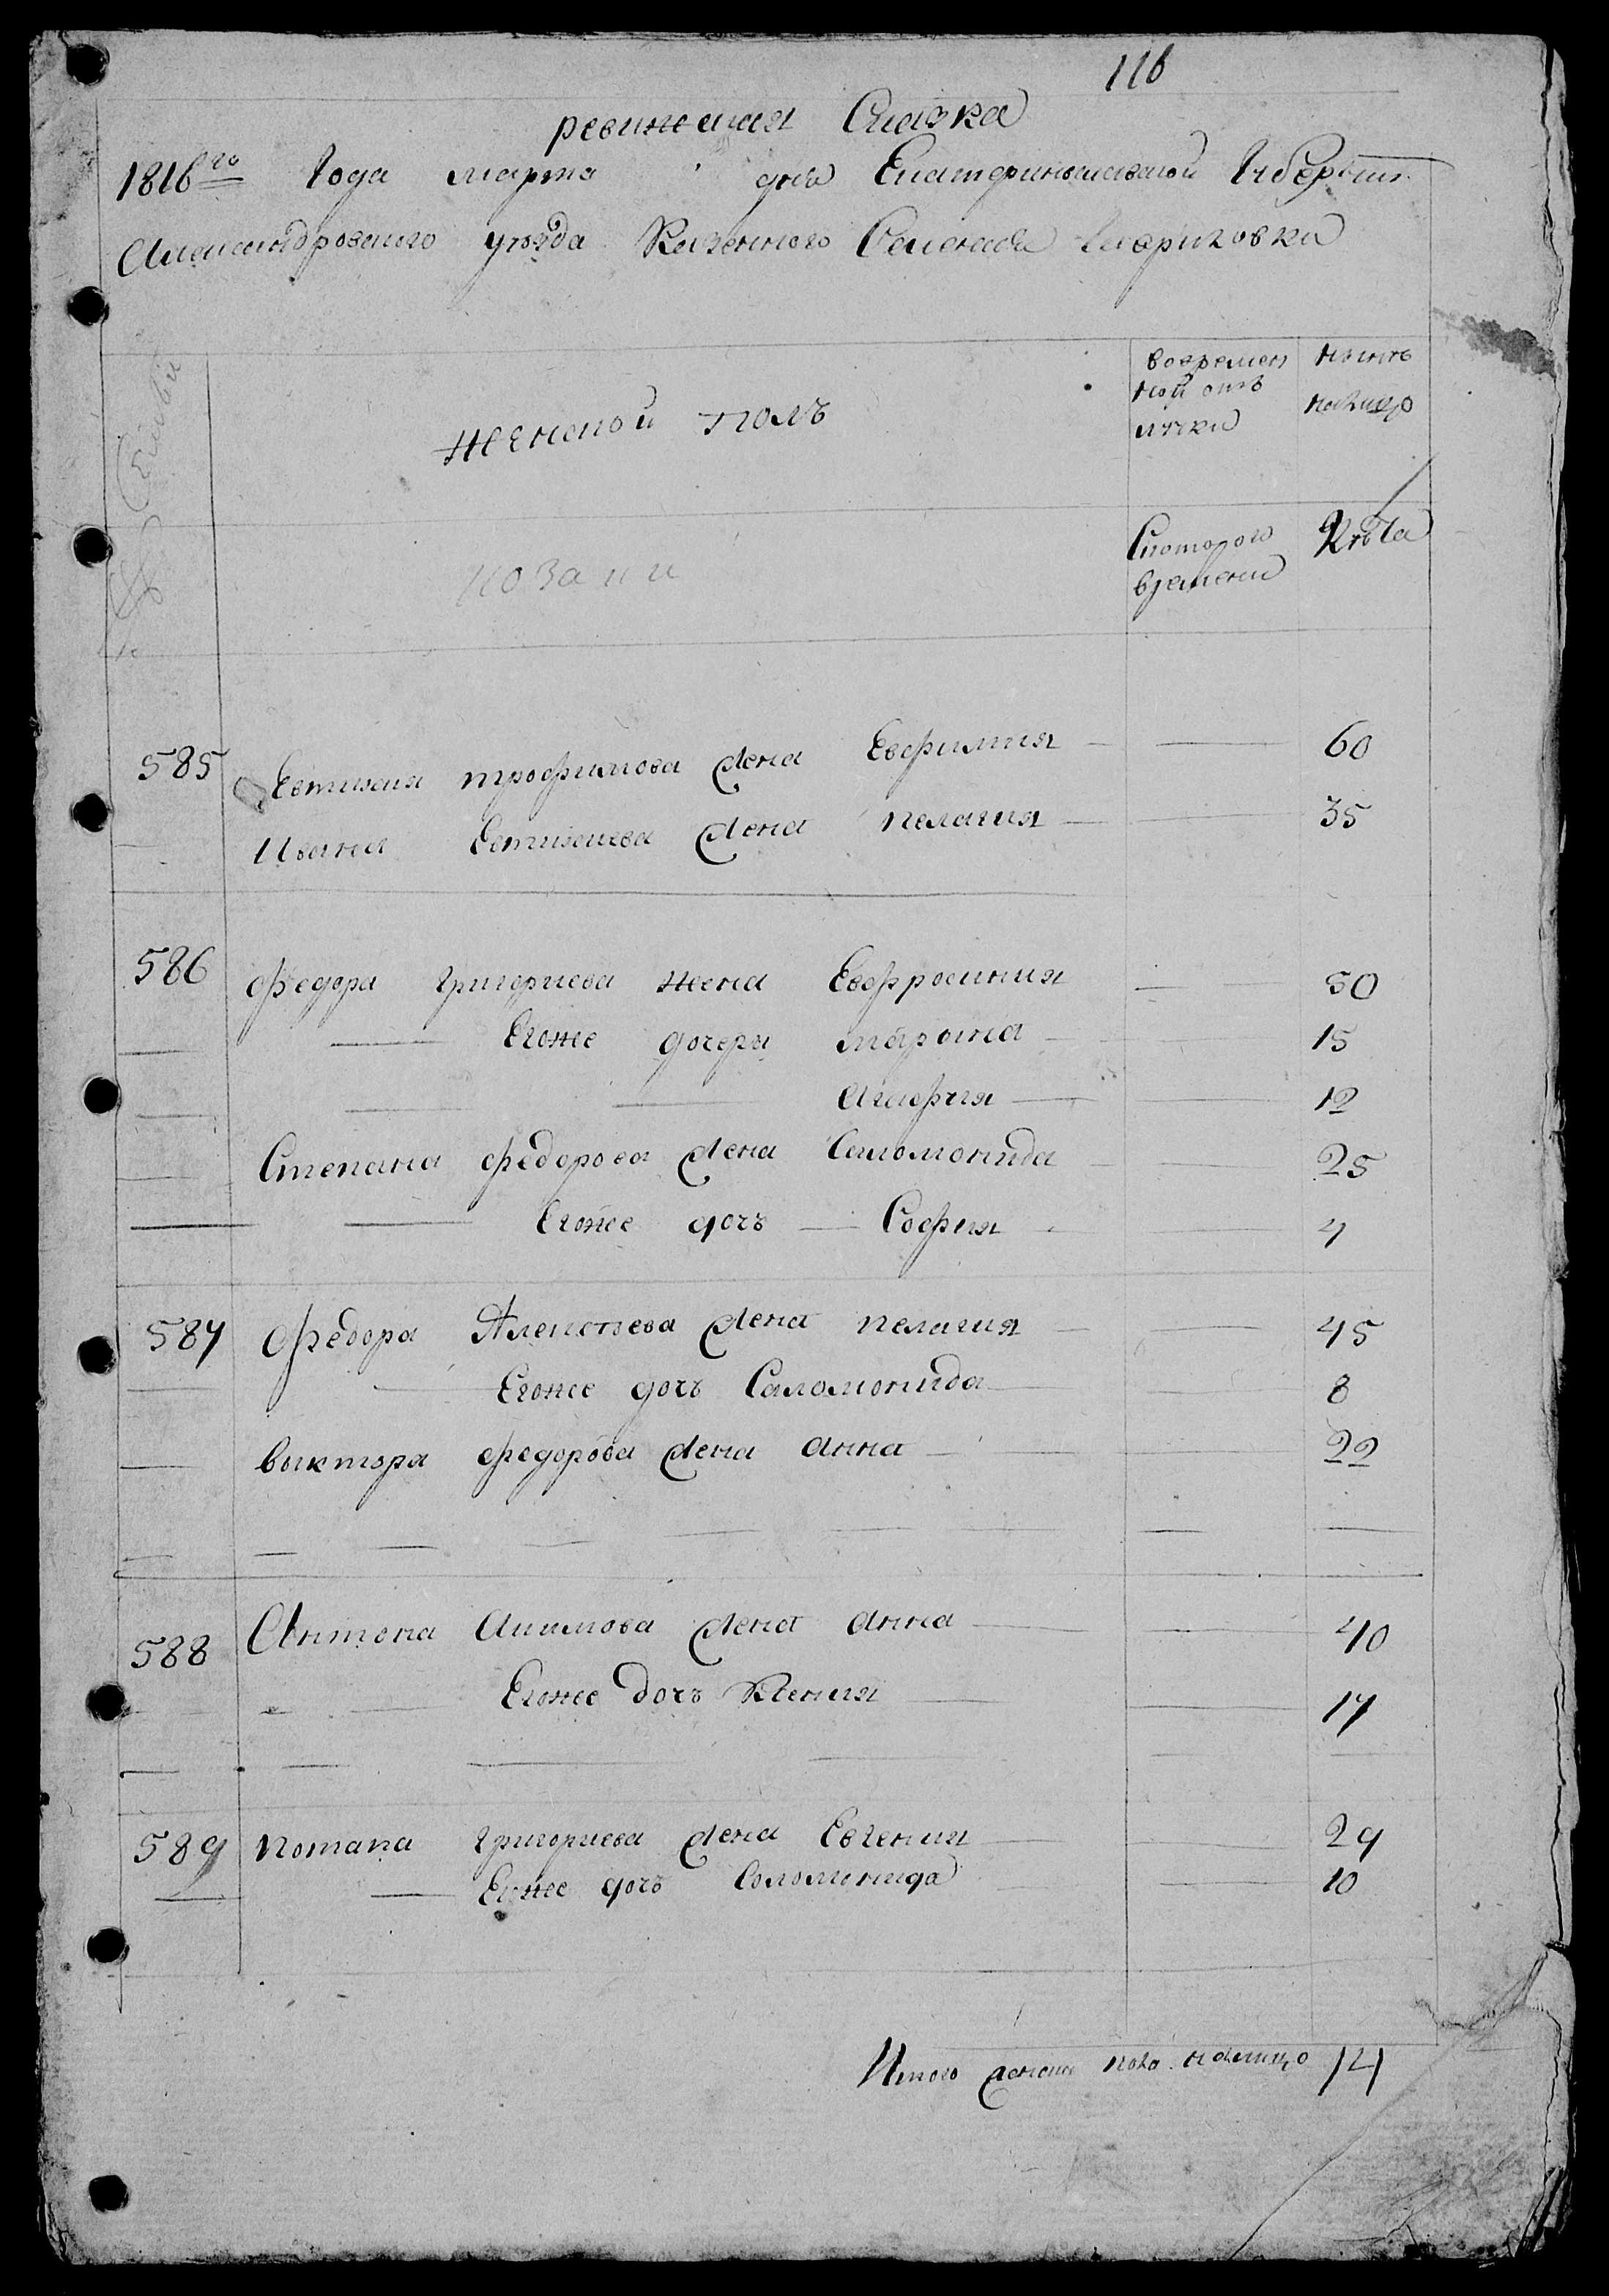 116
ревижская Сказка
1816го Года марта дня Екатеринославской Губернии
Александровского уезда Казенного Селения Гавриловки
женской полъ
вовремен
ной отъ
лучки
ныне
налицо
козаки
Скоторого
времени
Лета
585 Евтихия трофимова жена Евфимия 60
Ивана Евтихиева жена пелагия 35
586 Федора григориева жена Евфросиния 50
Егоже дочери марфина 15
Агафия 12
Степана федорова жена Саломонида 25
Егоже дочъ София 4
587 Федора Алексеева жена пелагия 45
Егоже дочъ Саломонида 8
виктора федорова жена Анна 22
588 Антона Акимова жена Анна 40
Егоже дочъ Ксения 17
589 потапа григориева жена Евгения 29
Егоже дочъ Соломонида 10
Итого женска пола налицо 14